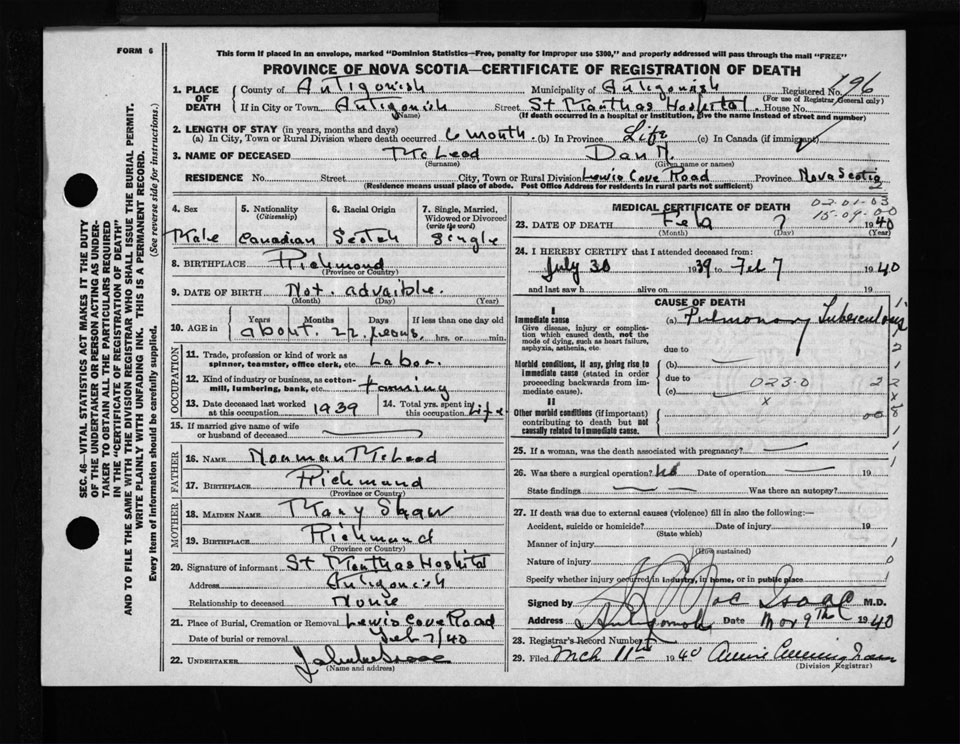 FORM 6
This form if placed in an envelope, marked "Dominion Statistics—Free, penalty for improper use $300," and properly addressed will pass through the mail "FREE"
PROVINCE OF NOVA SCOTIA—CERTIFICATE OF REGISTRATION OF DEATH
SEC. 46—VITAL STATISTICS ACT MAKES IT THE DUTY
OF THE UNDERTAKER OR PERSON ACTING AS UNDER-
TAKER TO OBTAIN ALL THE PARTICULARS REQUIRED
IN THE "CERTIFICATE OF REGISTRATION OF DEATH"
AND TO FILE THE SAME WITH THE DIVISION REGISTRAR WHO SHALL ISSUE THE BURIAL PERMIT.
WRITE PLAINLY WITH UNFADING INK. THIS IS A PERMANENT RECORD.
Every item of information should be carefully supplied. (See reverse side for instructions.)
1. PLACE OF DEATH
County of Antigonish Municipality of Antigonish Registered No. 196
(For use of Registrar General only)
If in City or Town Antigonish Street St Marthas Hospital. House No.
(Name) (If death occurred in a hospital or institution, give the name instead of street and number)
2. LENGTH OF STAY (in years, months and days)
(a) In City, Town or Rural Division where death occurred 6 month. (b) In Province Life (c) In Canada (if immigrant)
3. NAME OF DECEASED McLeod Dan M.
(Surname) (Given name or names)
RESIDENCE No. Street City, Town or Rural Division Lewis Cove Road Province Nova Scotia
(Residence means usual place of abode. Post Office Address for residents in rural parts not sufficient)
2
4. Sex 5. Nationality (Citizenship) 6. Racial Origin 7. Single, Married, Widowed or Divorced (write the word)
Male Canadian Scotch Single
8. BIRTHPLACE Richmond
(Province or Country)
9. DATE OF BIRTH Not. advaible.
(Month) (Day) (Year)
10. AGE in Years Months Days If less than one day old
about. 22. years. hrs. or min.
OCCUPATION
11. Trade, profession or kind of work as spinner, teamster, office clerk, etc. Labor.
12. Kind of industry or business, as cotton-mill, lumbering, bank, etc. farming
13. Date deceased last worked at this occupation 1939 14. Total yrs. spent in this occupation Life
15. If married give name of wife or husband of deceased
FATHER
16. NAME Norman McLeod
17. BIRTHPLACE Richmond
(Province or Country)
MOTHER
18. MAIDEN NAME Mary Shaw
19. BIRTHPLACE Richmond
(Province or Country)
20. Signature of informant St Marthas Hospital
Address Antigonish
Relationship to deceased None
21. Place of Burial, Cremation or Removal Lewis Cove Road
Date of burial or removal Feb 7/40
22. UNDERTAKER
(Name and address)
MEDICAL CERTIFICATE OF DEATH
02-01-03
15-09-00
23. DATE OF DEATH Feb 7 1940
(Month) (Day) (Year)
24. I HEREBY CERTIFY that I attended deceased from:
July 30 1939 to Feb 7 1940
and last saw h alive on 19
CAUSE OF DEATH
I
Immediate cause
Give disease, injury or complication which caused death, not the mode of dying, such as heart failure, asphyxia, asthenia, etc.
(a) Pulmonary Tuberculosis
due to
Morbid conditions, if any, giving rise to immediate cause (stated in order proceeding backwards from immediate cause).
(b)
due to
(c) 023.0
x
II
Other morbid conditions (if important) contributing to death but not causally related to immediate cause.
25. If a woman, was the death associated with pregnancy?
26. Was there a surgical operation? no Date of operation 19
State findings Was there an autopsy?
27. If death was due to external causes (violence) fill in also the following:—
Accident, suicide or homicide? Date of injury 19
(State which)
Manner of injury
(How sustained)
Nature of injury
Specify whether injury occurred in industry, in home, or in public place
Signed by Isaac M.D.
Address Antigonish Date Mar 9th 1940
28. Registrar's Record Number
29. Filed Mch 11th 1940 Annie Cunningham
(Division Registrar)